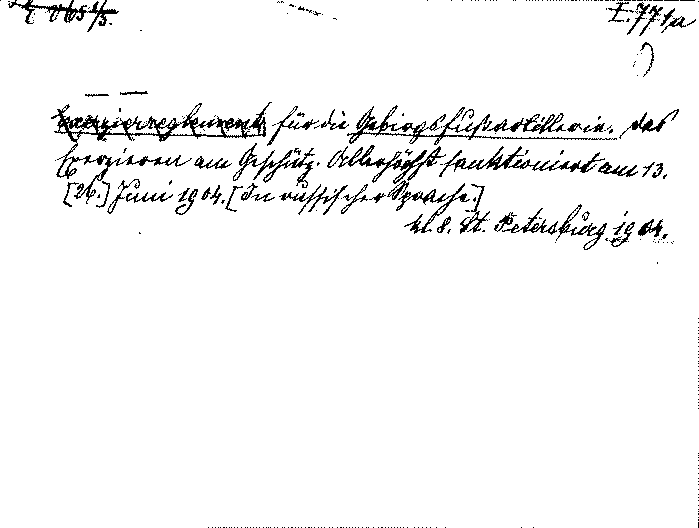 I.771,a
Exerzierreglement für die Gebirgsfußartillerie. Das
Exerzieren am Geschütz. Allerhöchst sanktioniert am 13.
[26.] Juni 1904. [In russischer Sprache.]
kl. 8. St. Petersburg 1904.